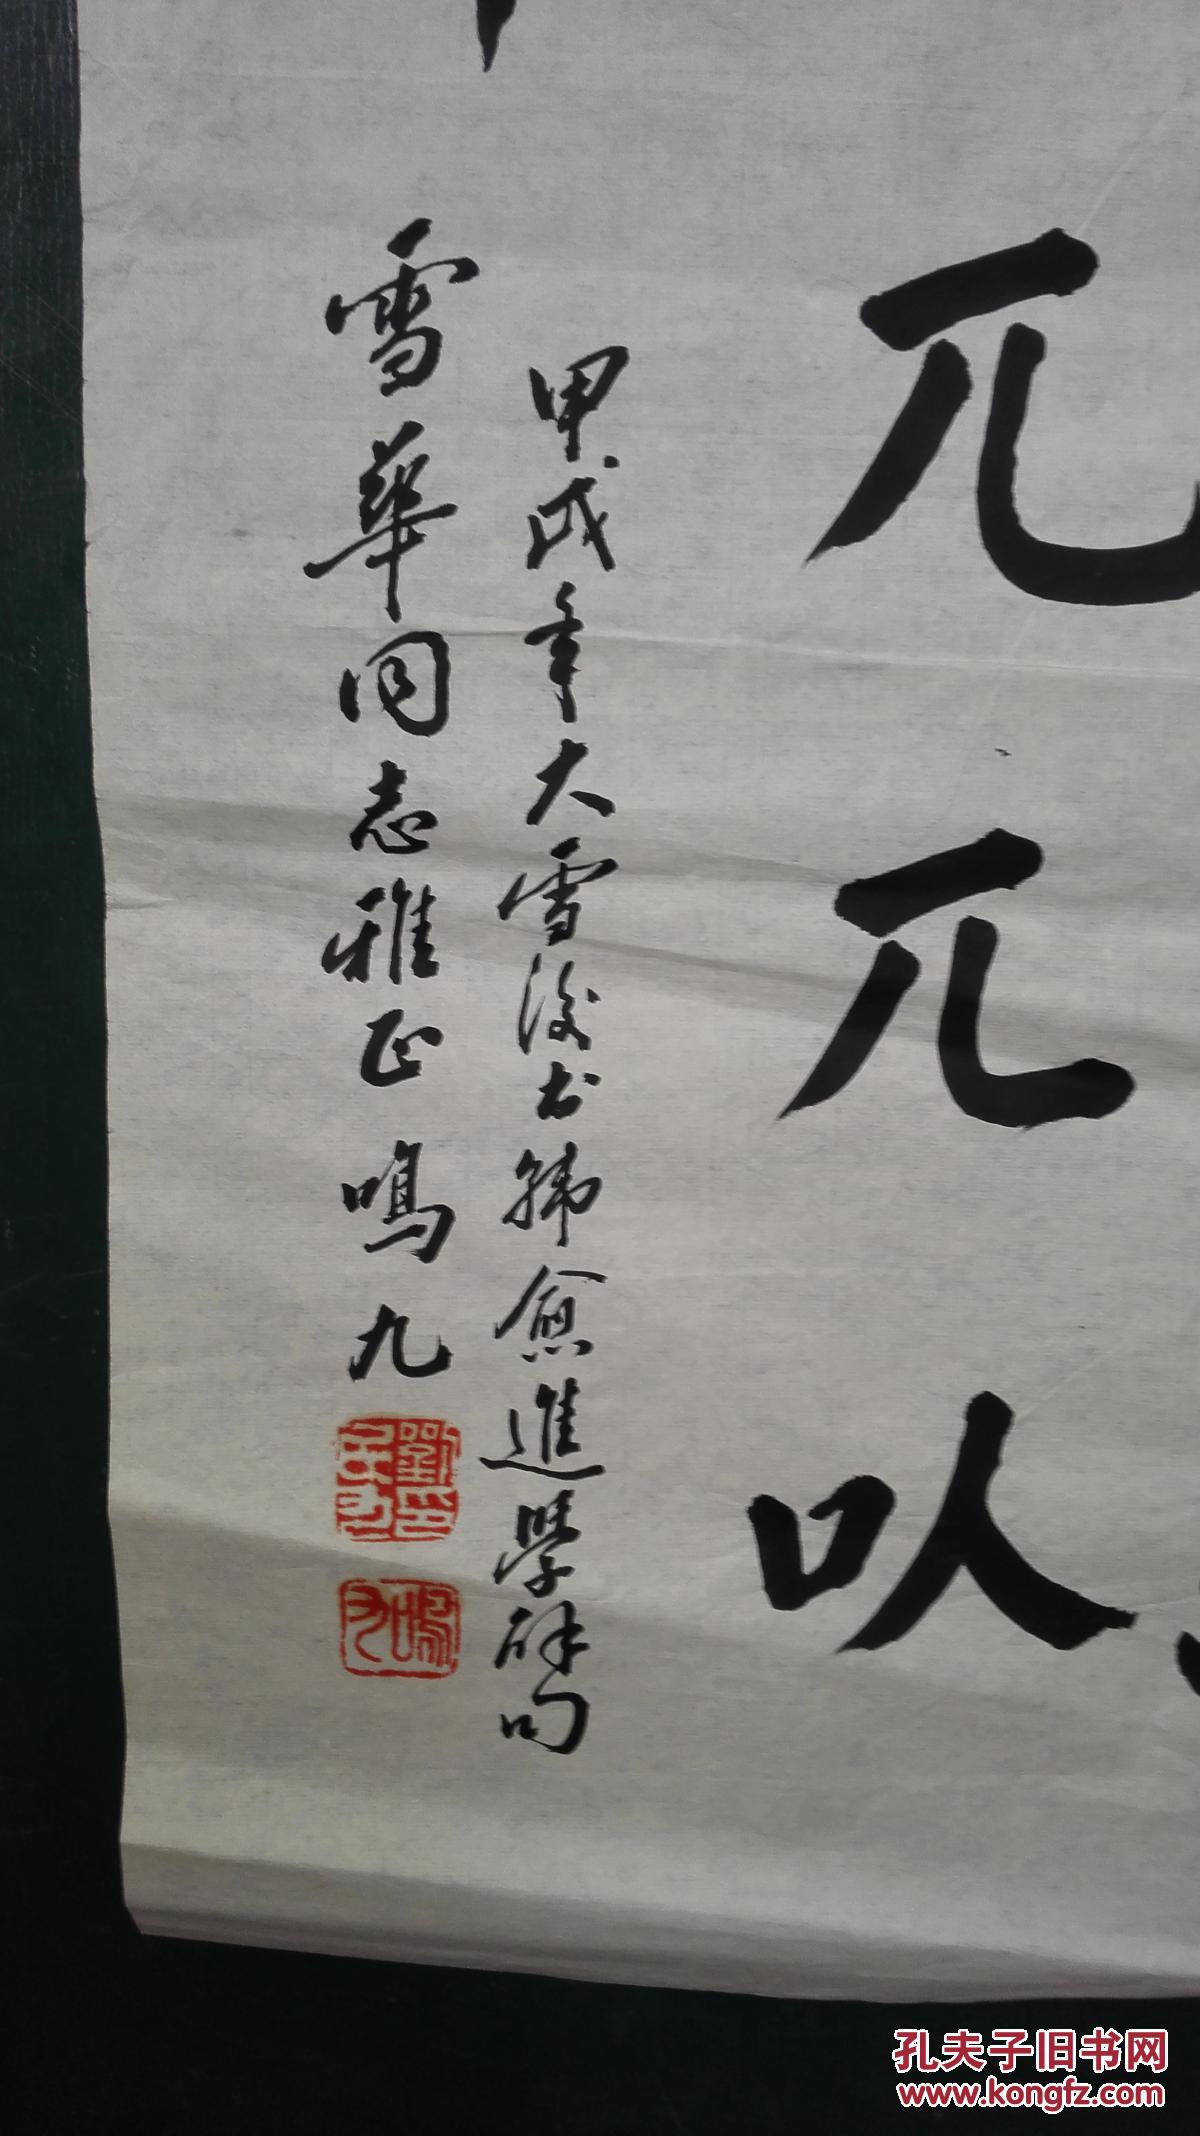 兀兀以
甲戌年大雪後书韩愈進學解句
雪華同志雅正 鳴九
鳴九
孔夫子旧书网
www.kongfz.com